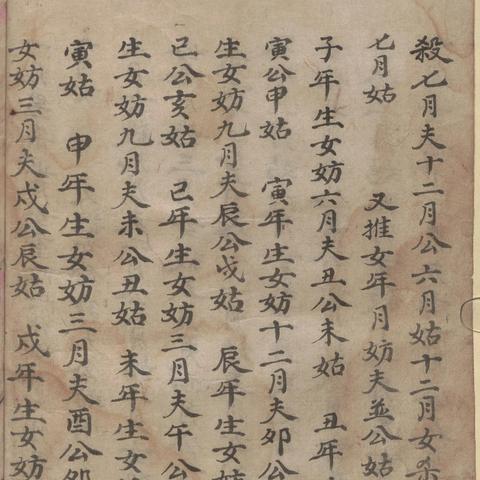 殺七月夫十二月公六月姑十二月女杀
七月姑　又推女年月妨夫並公姑
子年生女妨六月夫丑公未姑　丑年
寅公申姑　寅年生女妨十二月夫卯公
生女妨九月夫辰公戌姑　辰年生女妨
巳公亥姑　巳年生女妨三月夫午公
生女妨九月夫未公丑姑　未年生女
寅姑　申年生女妨三月夫酉公卯
女妨三月夫戌公辰姑　戌年生女妨